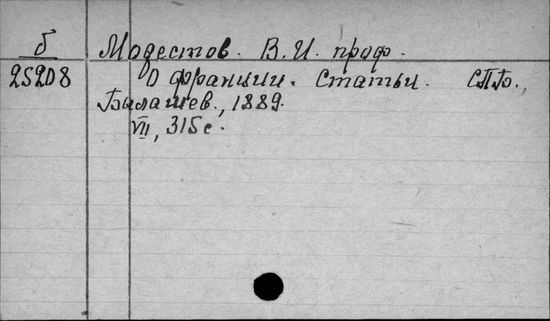 б Модестов. В.И. проф.
25208 О франции. Статьи. СПб.,
Балашев., 1889.
VII, 315 с.